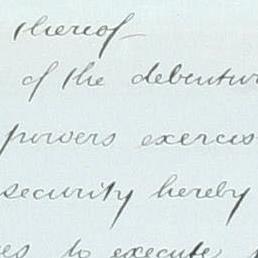 thereof
of the debentur
powers exercis
security hereby
es to execute